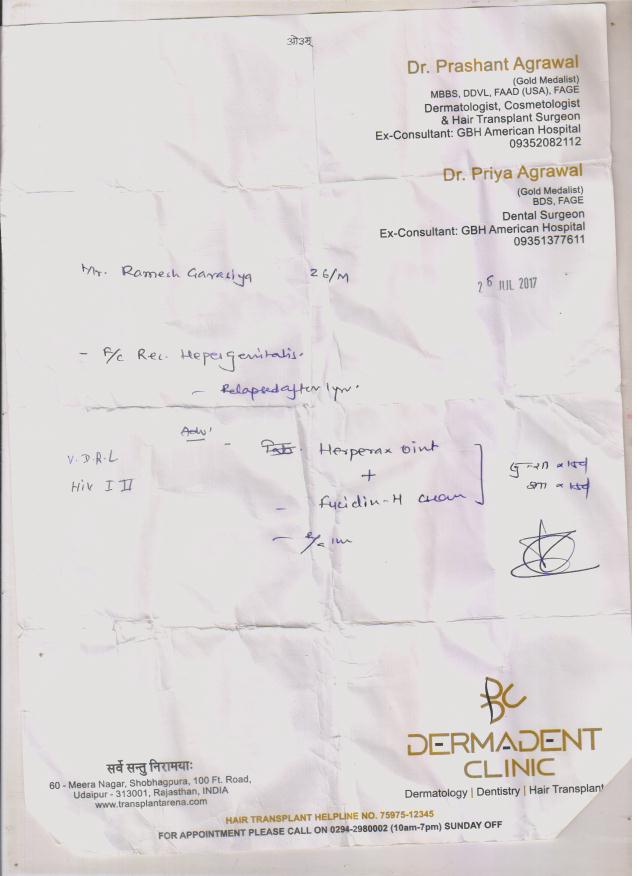 ओउम्
Dr. Prashant Agrawal
(Gold Medalist)
MBBS, DDVL, FAAD (USA), FAGE
Dermatologist, Cosmetologist
& Hair Transplant Surgeon
Ex-Consultant: GBH American Hospital
09352082112
Dr. Priya Agrawal
(Gold Medalist)
BDS, FAGE
Dental Surgeon
Ex-Consultant: GBH American Hospital
09351377611
Mr. Ramesh Garasiya 26/M
26 JUL 2017
- F/c Rec. Heper genitalis.
- Relapsed after 1yr.
Adv:
V.D.R.L
HIV I II
- Herperax oint
+
- Fucidin-H cream
DERMADENT
CLINIC
Dermatology | Dentistry | Hair Transplant
सर्वे सन्तु निरामयाः
60 - Meera Nagar, Shobhagpura, 100 Ft. Road,
Udaipur - 313001, Rajasthan, INDIA
www.transplantarena.com
HAIR TRANSPLANT HELPLINE NO. 75975-12345
FOR APPOINTMENT PLEASE CALL ON 0294-2980002 (10am-7pm) SUNDAY OFF